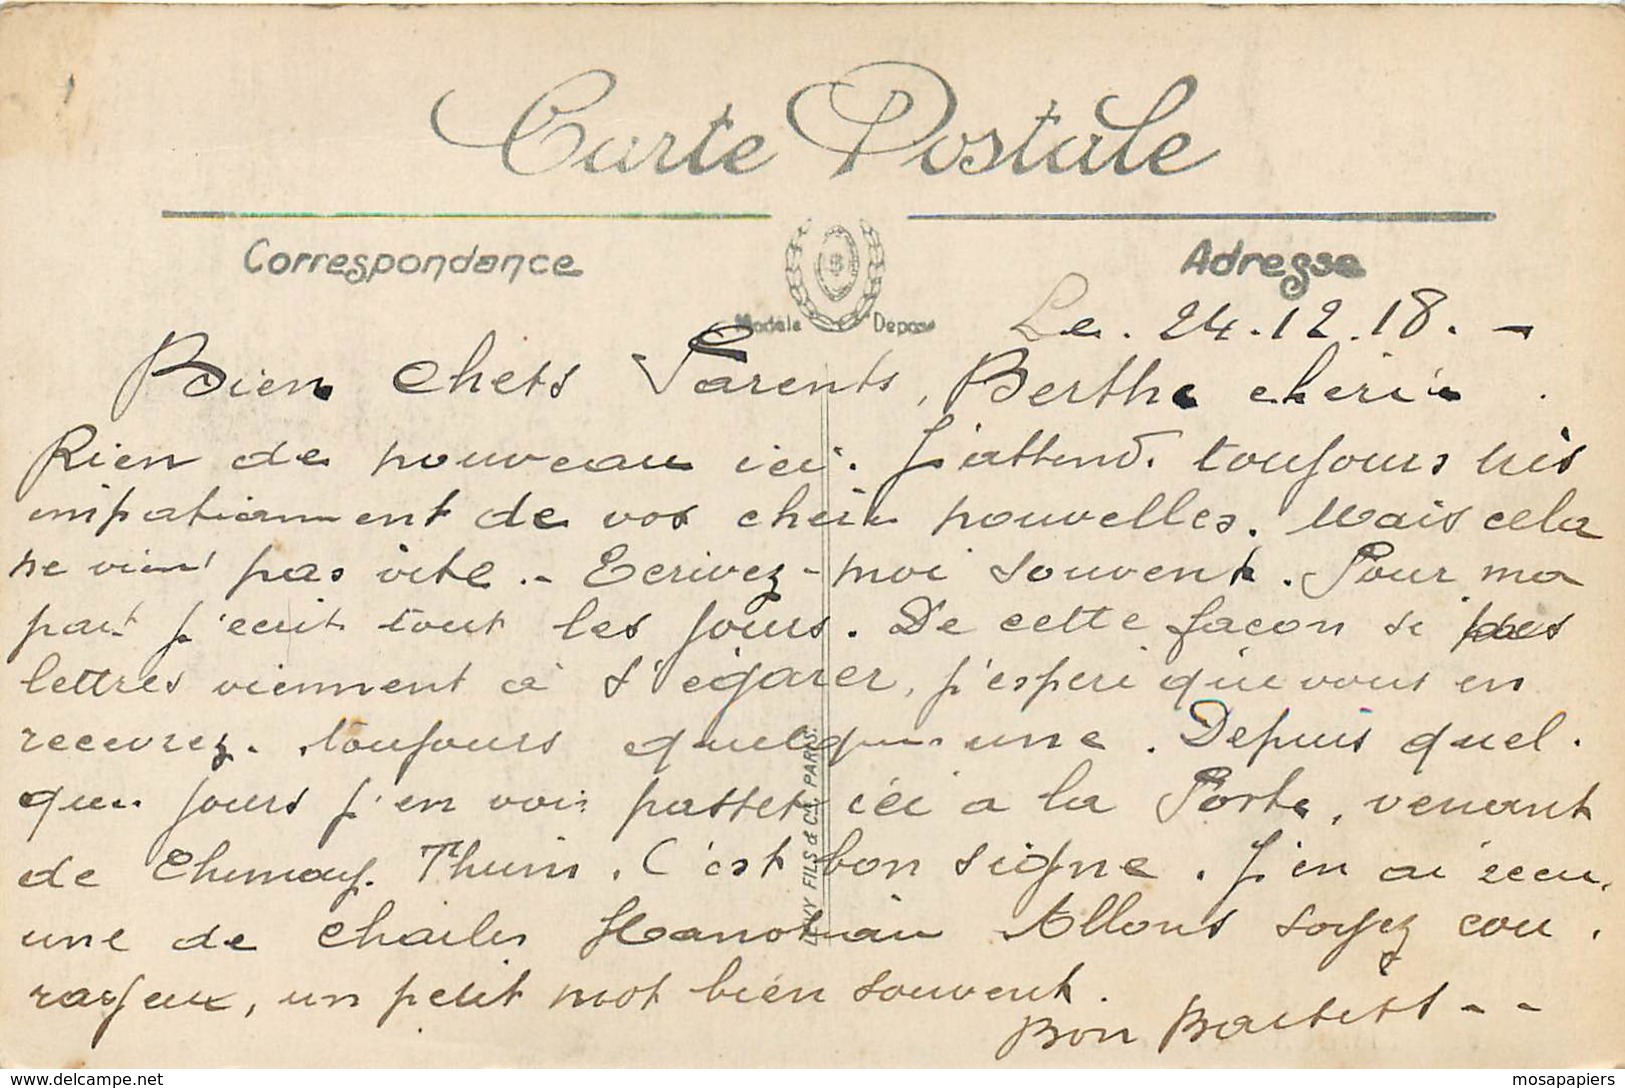 Carte Postale
Correspondance
Adresse
Modèle Déposé
Le. 24.12.18. -
Bien Chers Parents, Berthe cherie.
Rien de nouveau ici. J'attend. toujours très
impatiamment de vos chère nouvelles. Mais cela
ne vient pas vite. - Ecrivez-moi souvent. Pour ma
part j'ecrit tout les jours. De cette facon si des
lettres viennent à s'égarer, j'espere que vous en
recevrez. toujours quelques une. Depuis quel.
ques jours j'en vois passer ici a la Porte, venant
de Chimay. Thuin. C'est bon signe. J'en ai recu.
une de Charles Allons soyez cou.
rageux, un petit mot bien souvent.
Bon Baisers - -
LEVY FILS & Cie PARIS.
mosapapiers